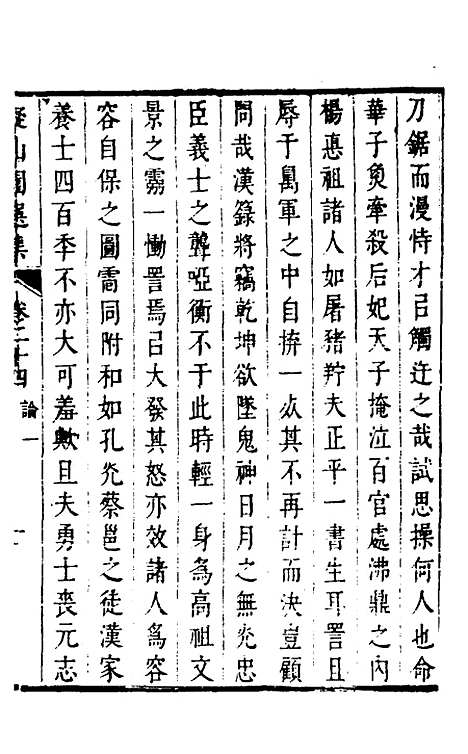 刀鋸而漫恃才㠯觸迕之哉試思操何人也命
華子魚牽殺后妃天子掩泣百官處沸鼎之內
楊惪祖諸人如屠猪羜夫正平一書生耳詈且
辱于萬軍之中自拚一㱙其不再計而決豈顧
問哉漢籙將竊乾坤欲墜鬼神日月之無灮忠
臣義士之聾啞衡不于此時輕一身爲高祖文
景之靈一慟詈焉㠯大發其怒亦效諸人爲容
容自保之圖雷同附和如孔灮蔡邕之徒漢家
養士四百季不亦大可羞歟且夫勇士喪元志
擬山園選集 卷二十四 論一 一